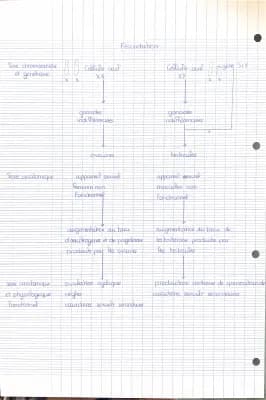 Fécondation
Sexe chromosomique Cellule œuf Cellule œuf gène SRY
et génétique XX XY
gonades gonades
indifférenciées indifférenciées
ovaires testicules
Sexe anatomique appareil sexuel appareil sexuel
féminin non masculin non
fonctionnel fonctionnel
augmentation du taux augmentation du taux de
d'œstrogène et de progestérone testostérone produite par
produits par les ovaires les testicules
Sexe anatomique ovulation cyclique production continue de spermatozoïdes
et physiologique règles caractères sexuels secondaires
fonctionnel caractères sexuels secondaires